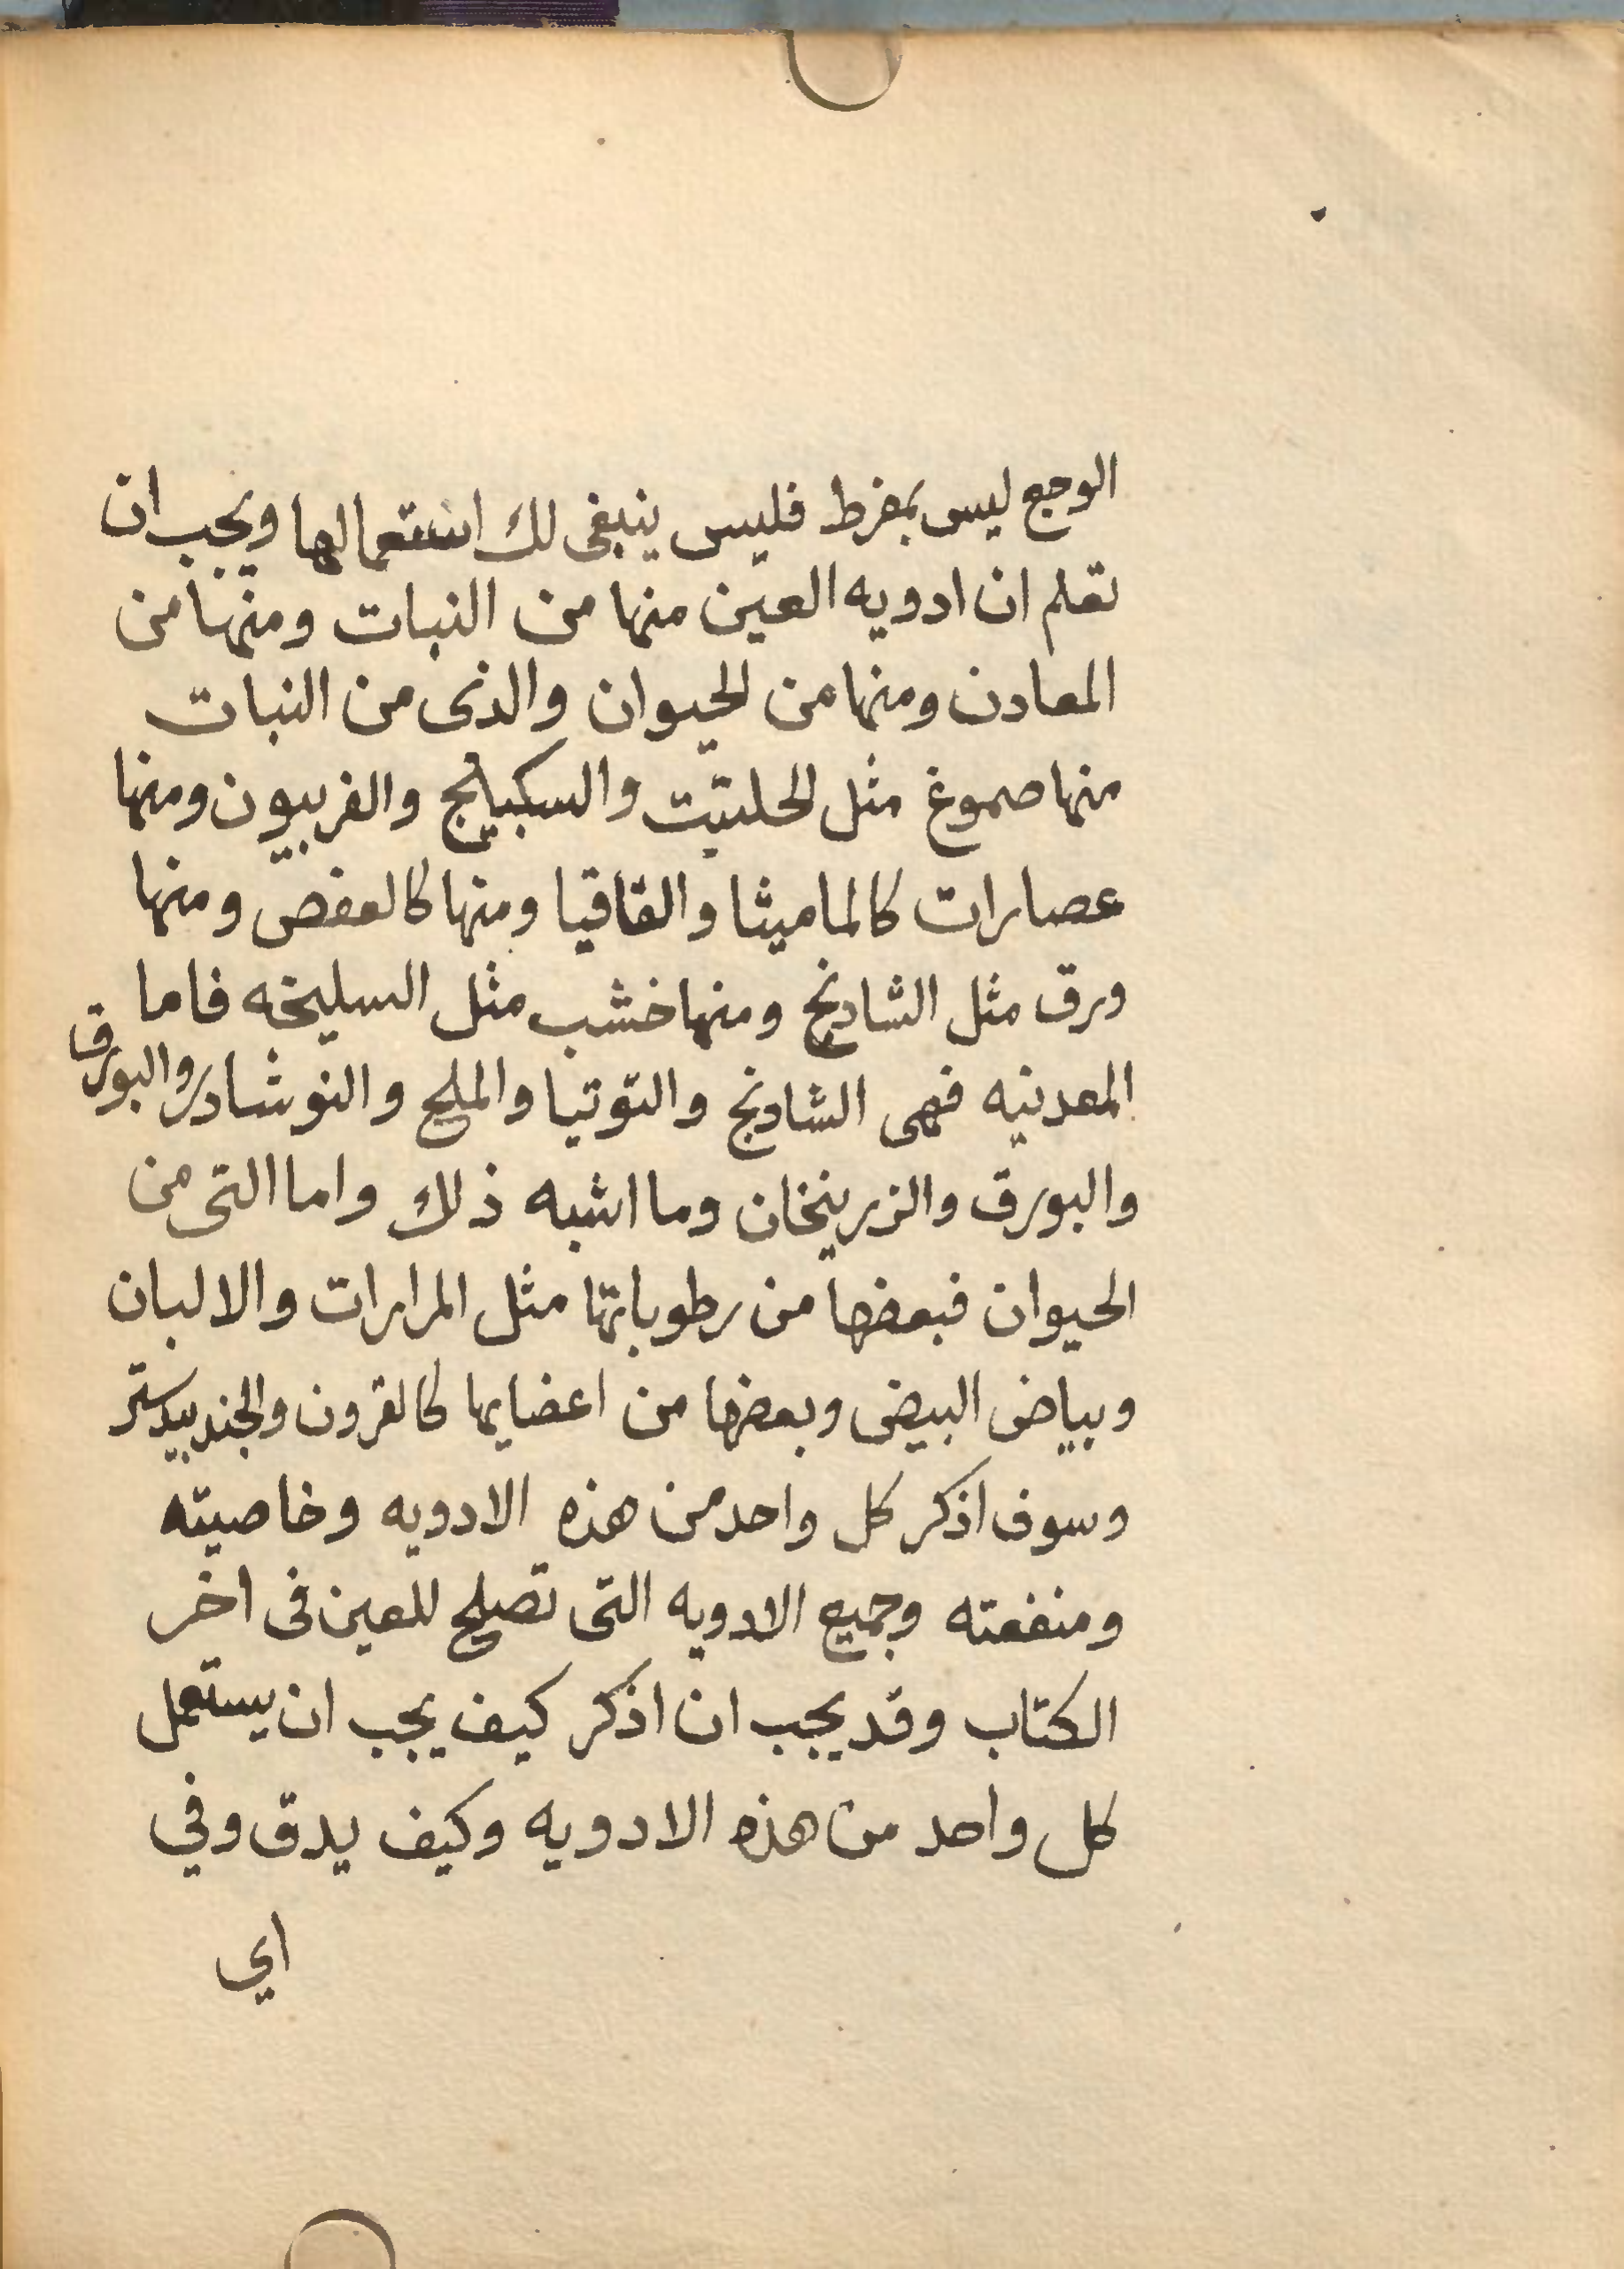 الوجع ليس بمفرط فليس ينبغى لك استعمالها ويجب ان
تعلم ان ادويه العين منها من النبات ومنها من
المعادن ومنها من الحيوان والذى من النبات
منها صموغ مثل الحلتيت والسكبينج والفربيون ومنها
عصارات كالماميثا والقاقيا ومنها كالعفص ومنها
ورق مثل الشادنج ومنها خشب مثل السليخه فاما
المعدنيه فهى الشادنج والتوتيا والملح والنوشادر والبورق
والبورق والزرنيخان وما اشبه ذلك واما التى من
الحيوان فبعضها من رطوباتها مثل المرارات والالبان
وبياض البيض وبعضها من اعضايها كالقرون والجندبيدستر
وسوف اذكر كل واحد من هذه الادويه وخاصيته
ومنفعته وجميع الادويه التى تصلح للعين فى اخر
الكتاب وقد يجب ان اذكر كيف يجب ان يستعمل
كل واحد من هذه الادويه وكيف يدق وفي
اي